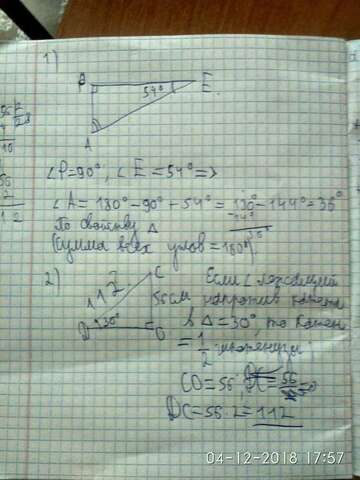 1)
E
54°
A
∠P=90°, ∠E=54° =>
∠A=180°-90°+54°=180°-144°=36°
По свойству Δ
(сумма всех углов=180°)
2)
C
112
56см
30°
D
O
Если ∠ лежащий
напротив катета
в Δ=30°, то катет
= 1/2 гипотенузы
CO=56
DC=56·2=112
04-12-2018 17:57